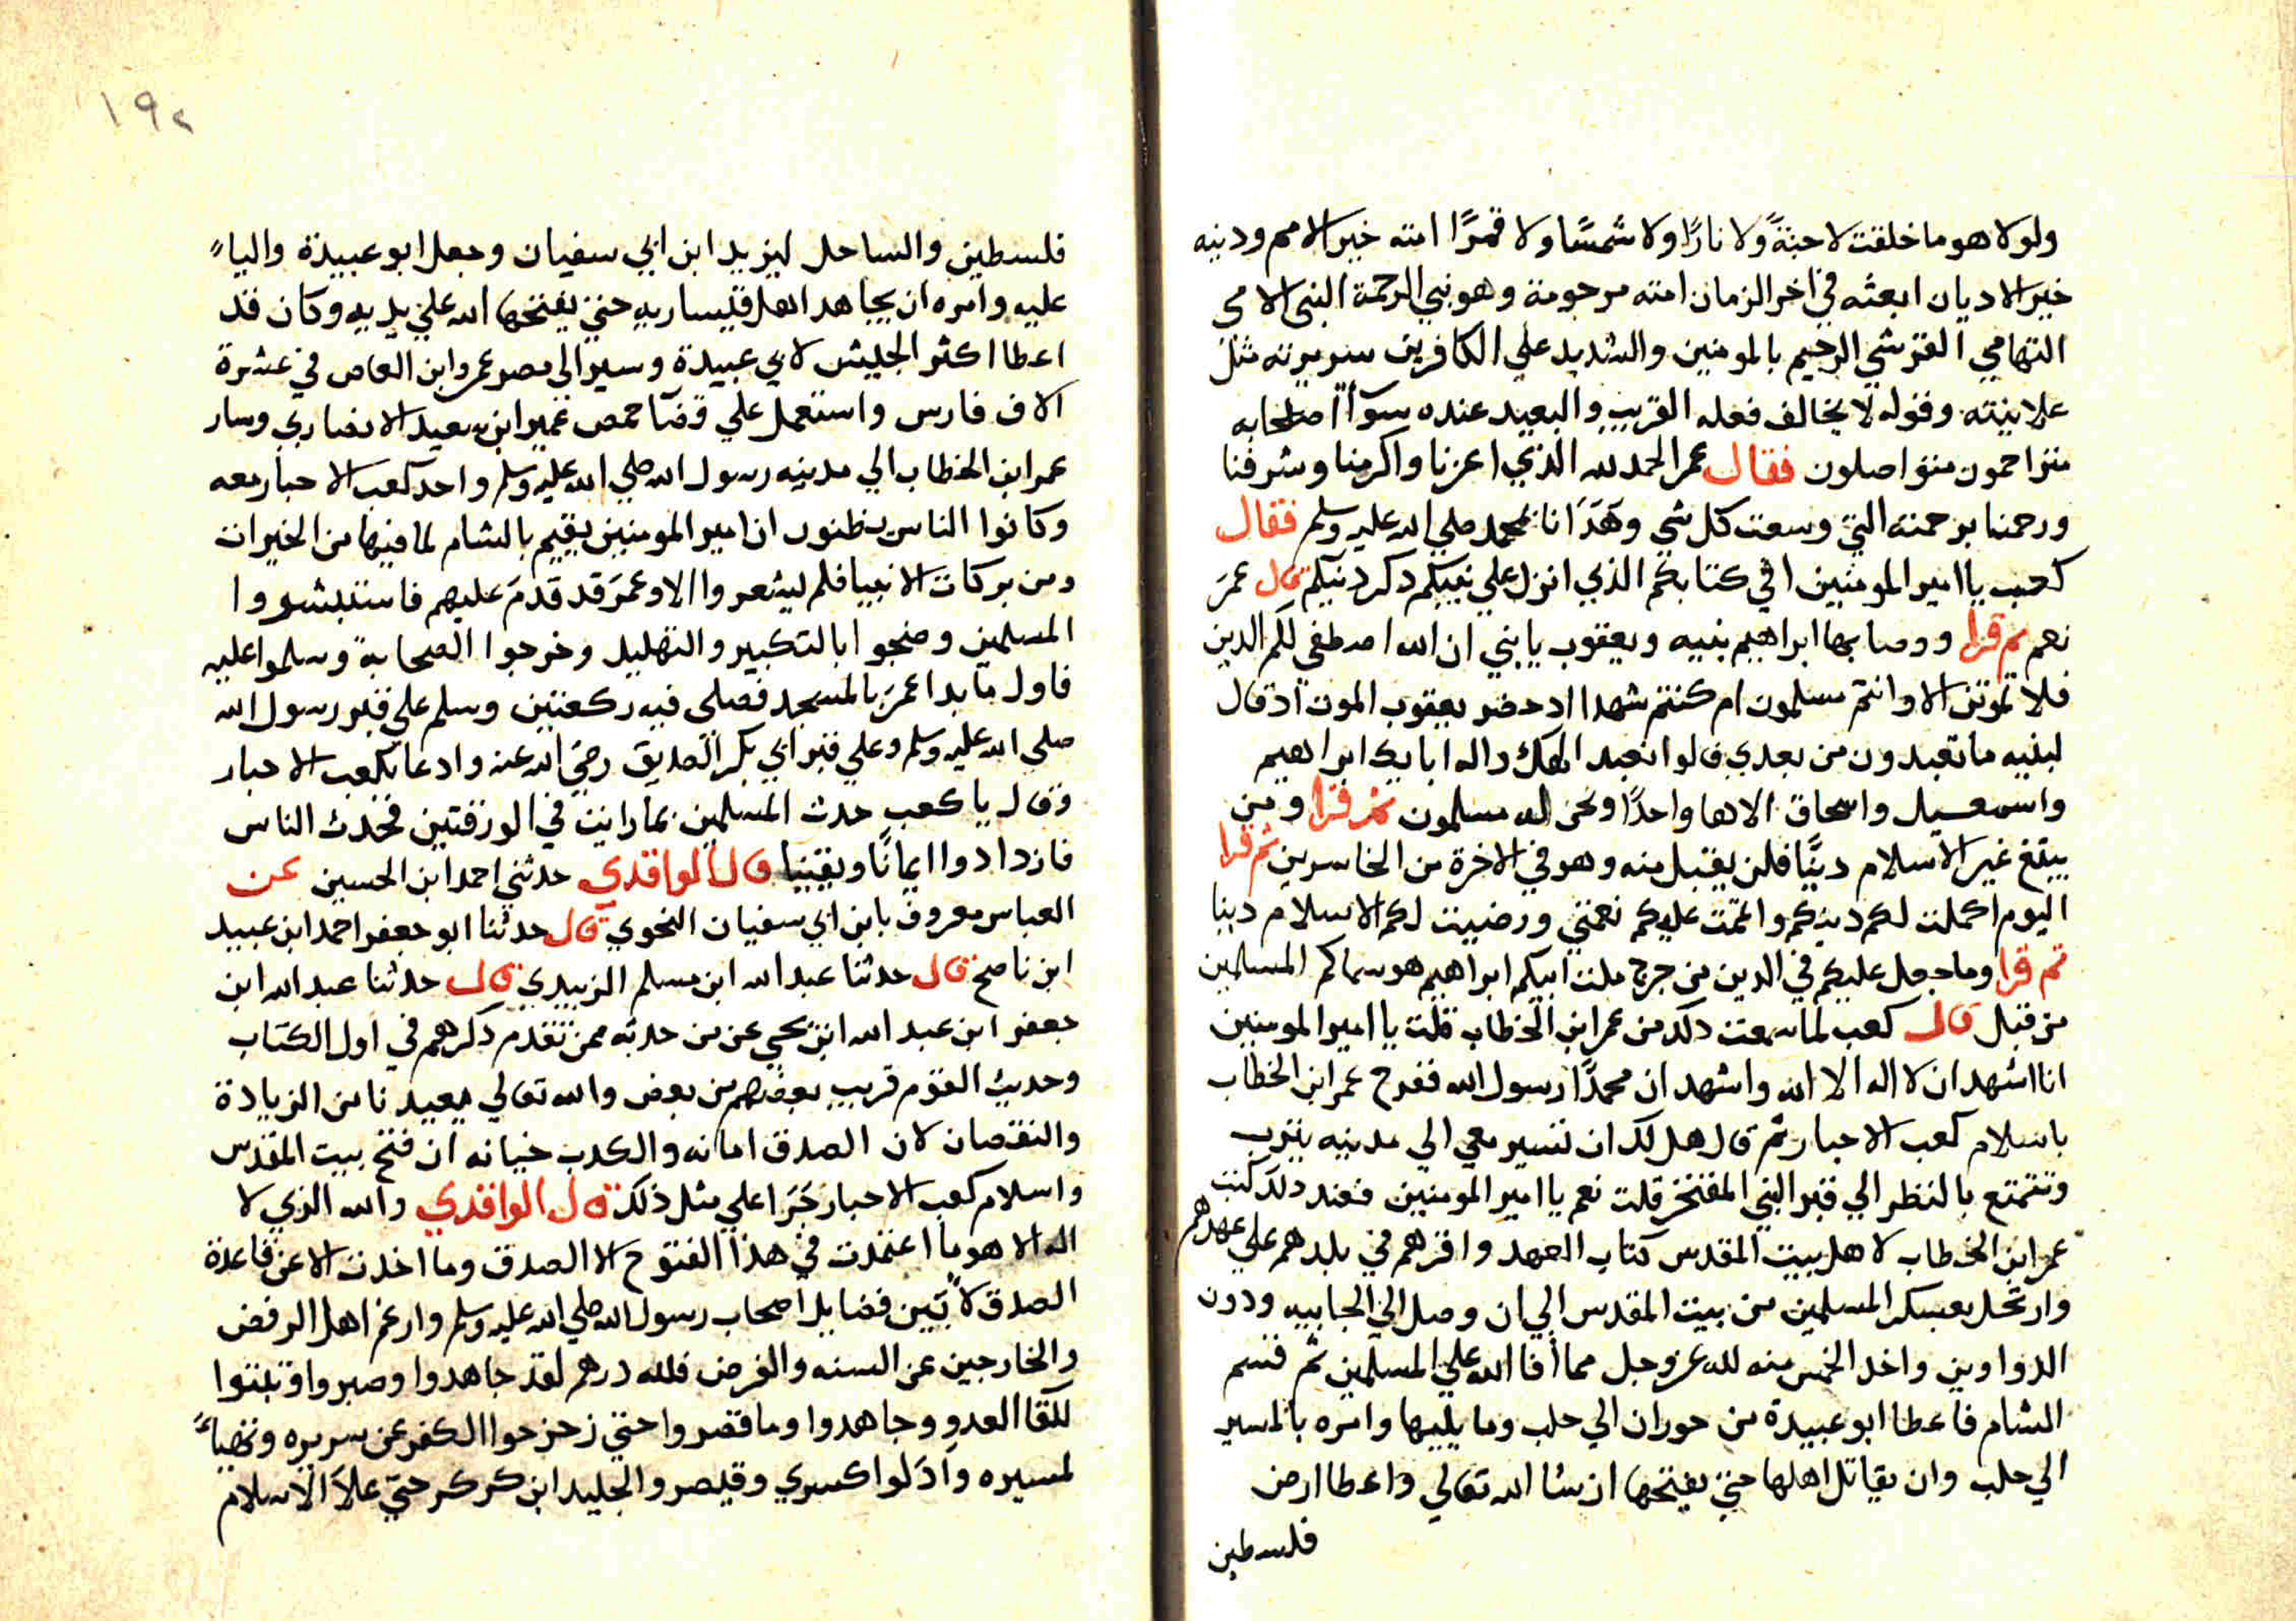 ولولا هو ما خلقت لا جنةً ولا نارًا ولا شمسًا ولا قمرًا امته خير الامم ودينه
خير الاديان ابعثه في اخر الزمان امته مرحومة وهو نبي الرحمة النبي الامي
التهامي القرشي الرحيم بالمومنين والشديد علي الكافرين سريرته مثل
علانيته وقوله لا يخالف فعله القريب والبعيد عنده سوآأ اصحابه
متراحمون متواصلون فقال عمر الحمد لله الذي اعزنا واكرمنا وشرفنا
ورحمنا برحمته التي وسعت كل شي وهَدَانا بمحمد صلي الله عليه وسلم فقال
كعب يا امير المومنين افي كتابكم الذي انزل علي نبيكم ذكر دنيكم قال عمَر
نعم ثم قرا ووصا بها ابراهيم بنيه ويعقوب يا بني ان الله اصطفي لكم الدين
فلا تموتن الا وانتم مسلمون ام كنتم شهدا اد حضر يعقوب الموت اذ قال
لبنيه ما تعبدون من بعدي قالوا نعبد الهك واله ابايك ابراهيم
واسمعيل واسحاق الاها واحدًا ونحن له مسلمون ثم قرا ومن
يبتغ غير الاسلام دينًا فلن يقبل منه وهو في الاخرة من الخاسرين ثم قرا
اليوم اكملت لكم دينكم واتممت عليكم نعمتي ورضيت لكم الاسلام دينا
ثم قرا وما جعل عليكم في الدين من حرج ملت ابيكم ابراهيم هو سماكم المسلمين
من قبل قال كعب لما سمعت دلك من عمر ابن الخطاب قلت يا امير المومنين
انا اشهد ان لا اله الا الله واشهد ان محمدًا رسول الله ففرح عمر ابن الخطاب
باسلام كعب الاحبار ثم قال هل لك ان تسير معي الي مدينيه يثرب
وتتمتع بالنظر الي قبر النبي المفتخر قلت نعم يا امير المومنين فعند دلك كتب
عمر ابن الخطاب لاهل بيت المقدس كتاب العهد واقرهم في بلدهم علي عهدهم
وارتحل بعسكر المسلمين من بيت المقدس الي ان وصل الي الجابيه ودون
الدواوين واخد الخمس منه لله عز وجل مما أفا الله علي المسلمين ثم قسم
الشام فاعطا ابو عبيدة من حوران الي حلب وما يليها وامره بالمسير
الي حلب وان يقاتل اهلها حتي يفتحها ان شا الله تعالي واعطا ارض
فلسطين
١٩٢
فلسطين والساحل ليزيد ابن ابي سفيان وجعل ابو عبيدة والياً
عليه وامره ان يجاهد اهل قيساريه حتي يفتحها الله علي يديه وكان قد
اعطا اكثر الجيش لابي عبيدة وسير الي مصر عمرو ابن العاص في عشرة
الاف فارس واستعمل علي قضآ حمص عمير ابن سعيد الانصاري وسار
عمر ابن الخطاب الي مدينه رسول الله صلي الله عليه وسلم واحد كعب الاحبار معه
وكانوا الناس يظنون ان امير المومنين يقيم بالشام لما فيها من الخيرات
ومن بركات الانبيا فلم يشعروا الا وعمَر قد قدمَ عليهم فاستبشروا
المسلمين وضجوا بالتكبير والتهليل وخرجوا الصحابة وسلموا عليه
فاول ما بدا عمرَ بالمسجد فصلي فيه ركعتين وسلم علي قبر رسول الله
صلي الله عليه وسلم وعلي قبر ابي بكر الصديق رضي الله عنه وادعا بكعب الاحبار
وقال يا كعب حدث المسلمين بما رايت في الورقتين فحدث الناس
فازدادوا ايمانًا ويقينيا قال الواقدي حدثني احمد ابن الحسين عن
العباس معروف بابن ابي سفيان النحوي قال حدثنا ابو جعفر احمد ابن عبيد
ابن ناصح قال حدثنا عبد الله ابن مسلم الزبيدي قال حدثنا عبد الله ابن
جعفر ابن عبد الله ابن يحيي عن من حدثه ممن تقدم دكرهم في اول الكتاب
وحديث القوم قريب بعضهم من بعض والله تعالي يعيدنا من الزيادة
والنقصان لان الصدق امانه والكدب خيانه ان فتح بيت المقدس
واسلام كعب الاحبار جَرَا علي مثل ذلك قال الواقدي والله الذي لا
اله الا هو ما اعتمدت في هذا الفتوح الا الصدق وما اخدت الا عن قاعدة
الصدق لاُبَين فضايل اصحاب رسول الله صلي الله عليه وسلم وارغم اهل الرفض
والخارجين عن السنه والفرض فلله درهم لقد جاهدوا وصبروا وثبتوا
للقا العدو وجاهدوا وما قصروا حتي زحزحوا الكفر عن سريره وتهيأً
لمسيره وادَلوا كسري وقيصر والجليد ابن كركر حتي علاَ الاسلام